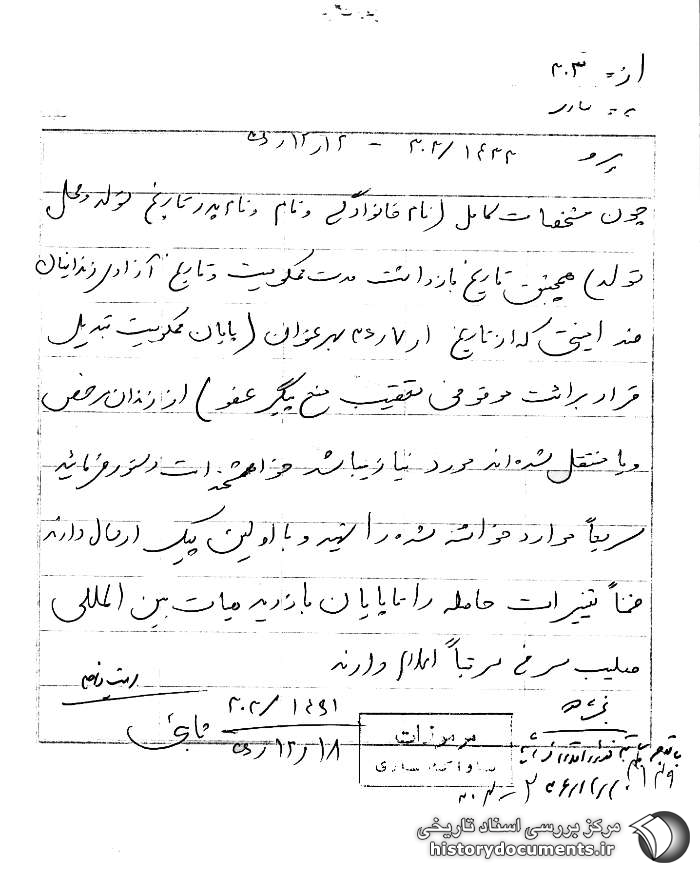 از = ۳۰۳
به = ساری
پیرو ۳۰۳/۱۴۳۳ - ۱۲ر۱۲ر۵۶
چون مشخصات کامل (نام خانوادگی و نام و نام پدر تاریخ تولد و محل
تولد) همچنین تاریخ بازداشت مدت محکومیت و تاریخ آزادی زندانیان
ضد امنیتی که از تاریخ ار۷ر۳۶ بهر عنوان (پایان محکومیت تبدیل
قرار برائت موقوفی تعقیب منع پیگرد عفو) از زندان مرخص
و یا منتقل شده‌اند مورد نیاز میباشد خواهشمند است دستور فرمائید
سریعاً موارد خواسته شده را تهیه و با اولین پیک ارسال دارند
ضمناً تغییرات حاصله را تا پایان بازدید هیات بین المللی
صلیب سرخ مرتباً اعلام دارند
۳۰۳/۱۴۹۱
۱۸ر۱۲ر۵۶
ثابتی
مرموزات
ساواک ساری
مرکز بررسی اسناد تاریخی
historydocuments.ir